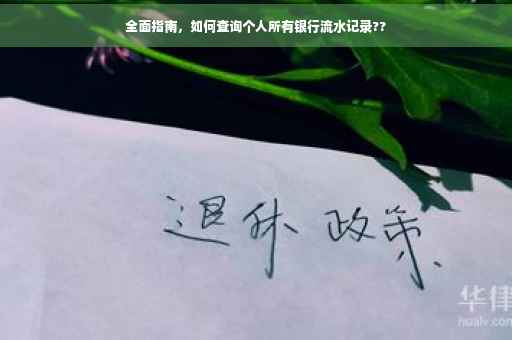 全面指南，如何查询个人所有银行流水记录??
退休 政策
华律
hualv.com